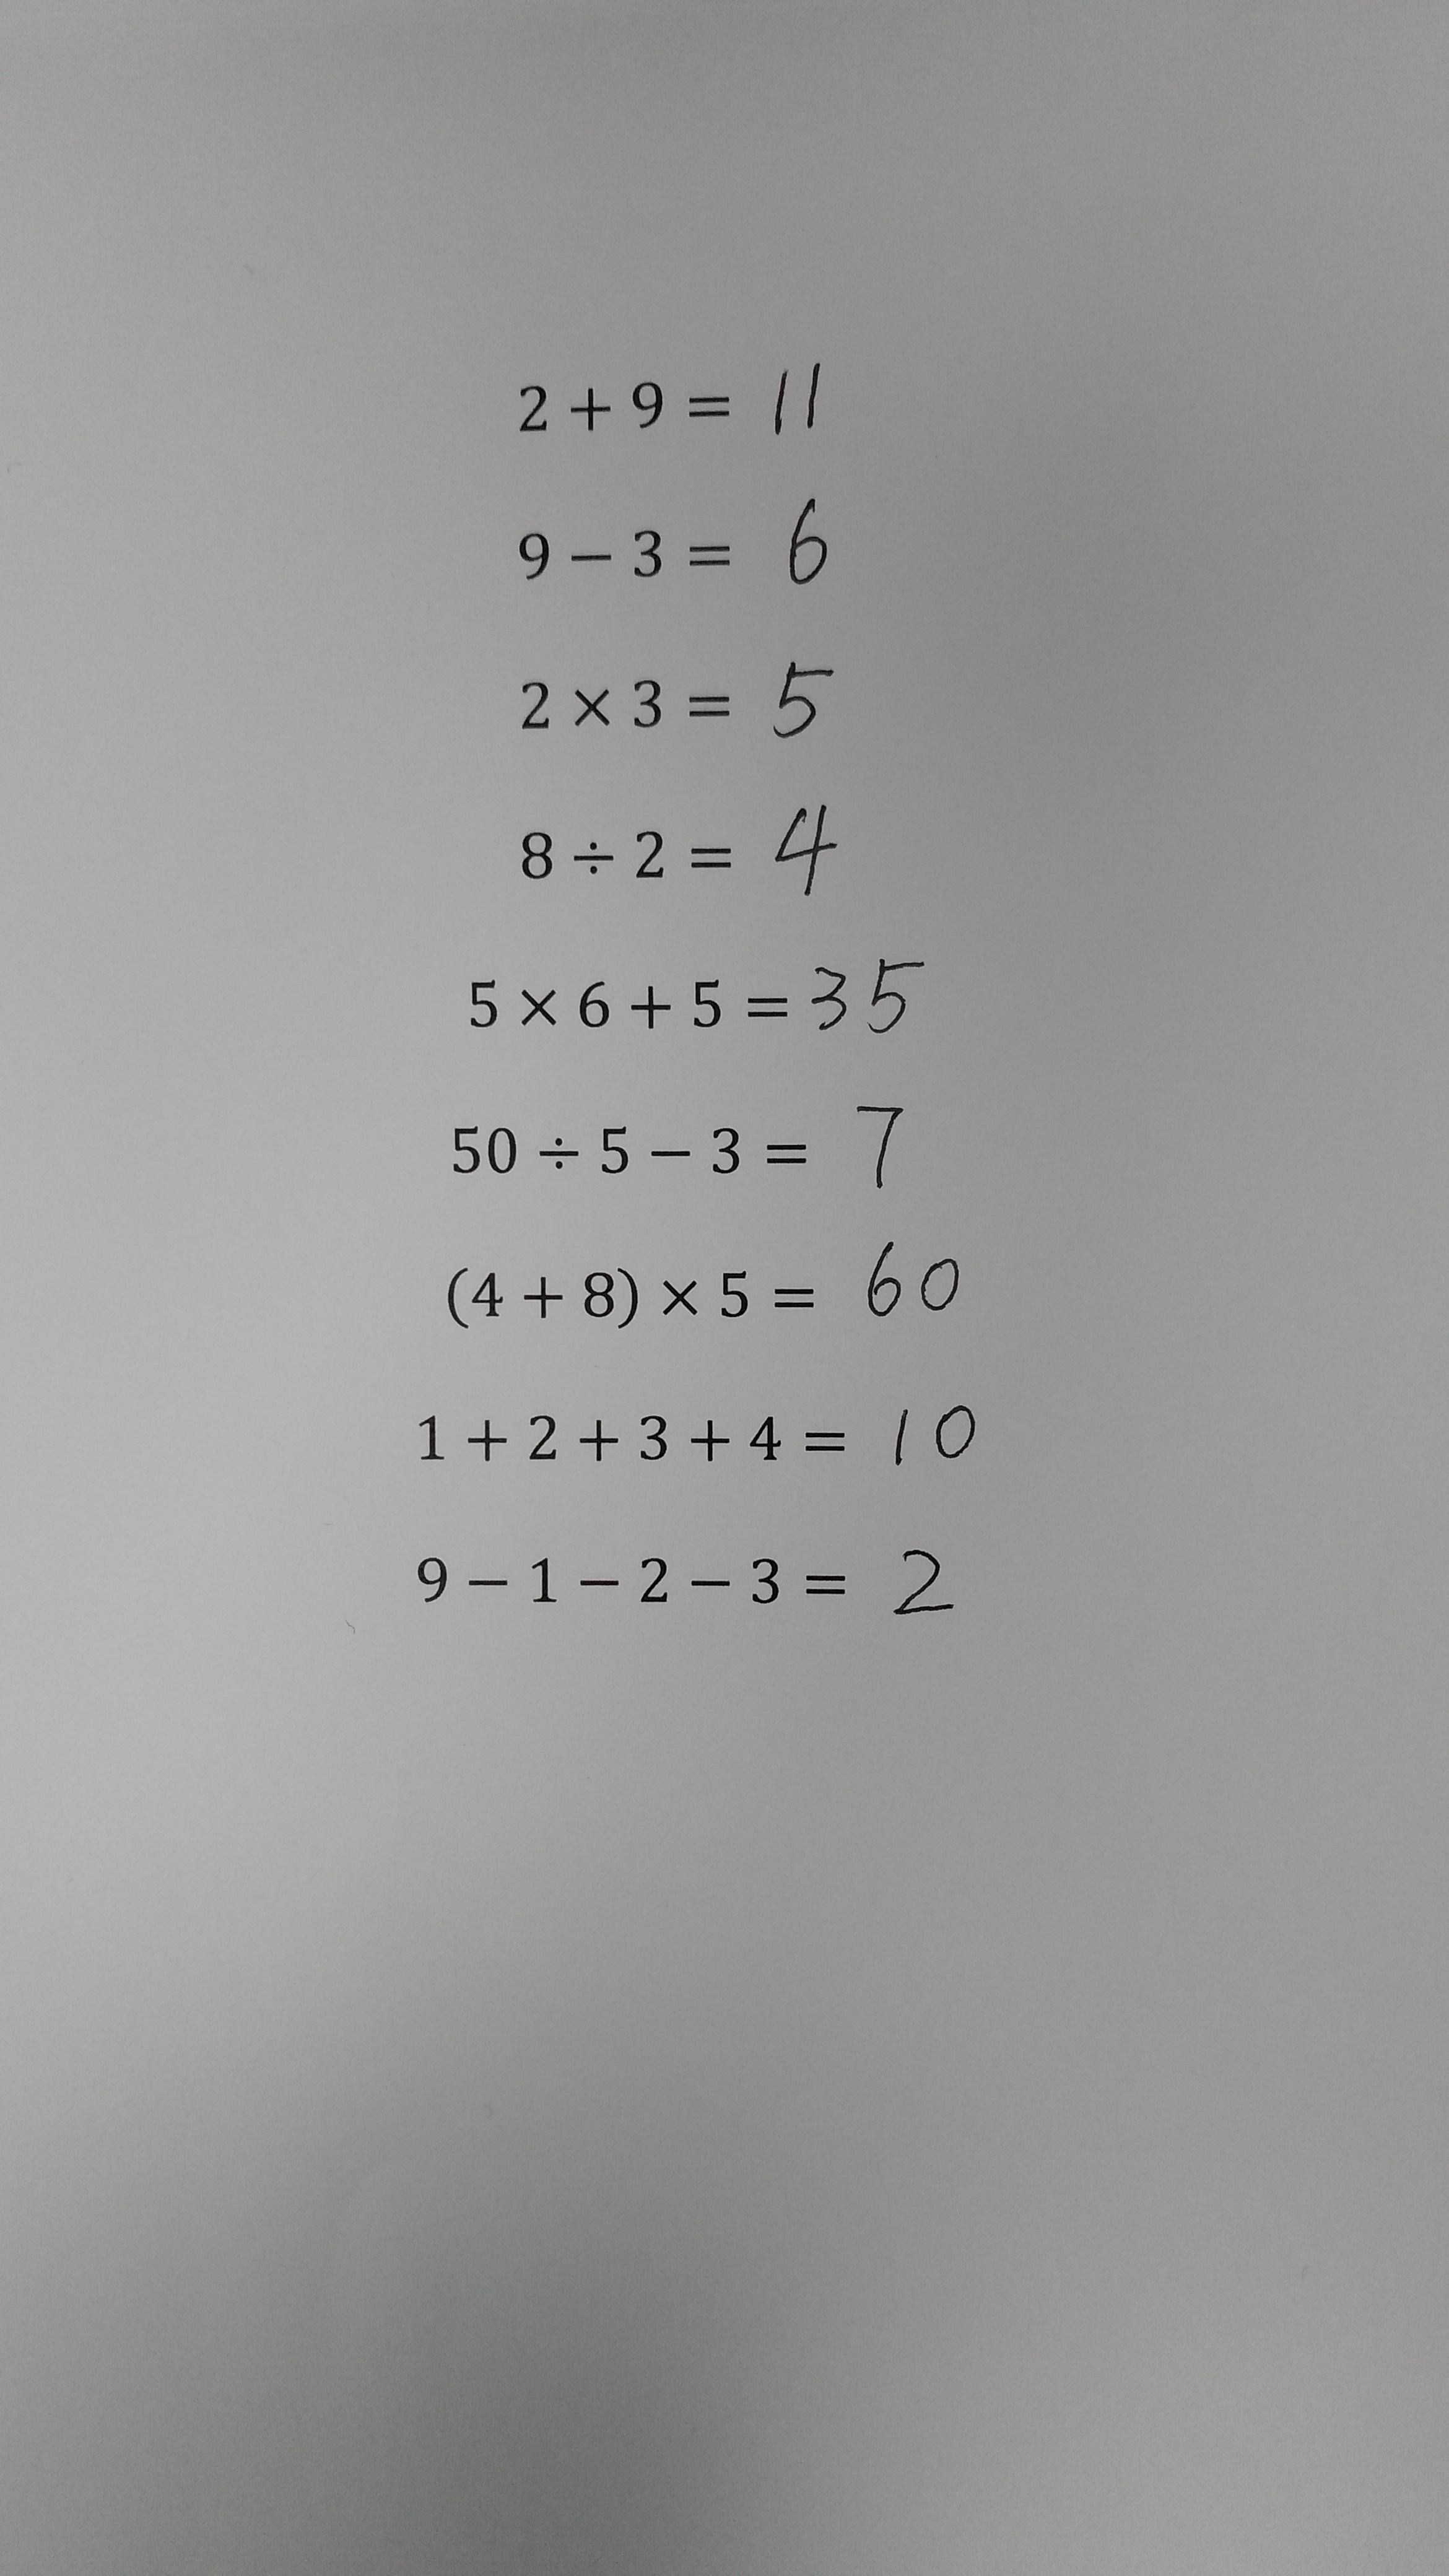 2 + 9 = 11
9 − 3 = 6
2 × 3 = 5
8 ÷ 2 = 4
5 × 6 + 5 = 35
50 ÷ 5 − 3 = 7
(4 + 8) × 5 = 60
1 + 2 + 3 + 4 = 10
9 − 1 − 2 − 3 = 2